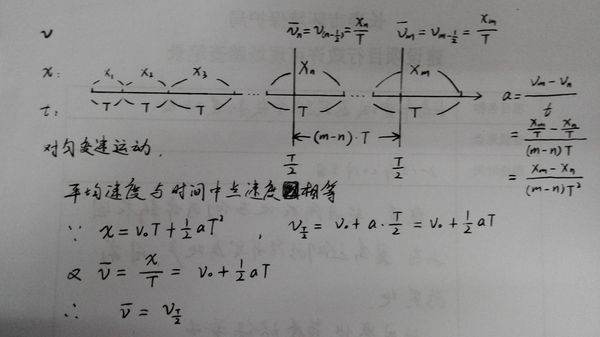 v
v̄ₙ = v₍ₙ₋½₎ = xₙ/T
v̄ₘ = vₘ₋½ = xₘ/T
x: x₁ x₂ x₃ xₙ xₘ
t: T T T … T … T
(m-n)·T
T/2 T/2
a = (vₘ - vₙ)/t
= (xₘ/T - xₙ/T)/((m-n)T)
= (xₘ - xₙ)/((m-n)T²)
对匀变速运动,
平均速度与时间中点速度相等
∵ x = v₀T + ½aT² , v_T/2 = v₀ + a·T/2 = v₀ + ½aT
又 v̄ = x/T = v₀ + ½aT
∴ v̄ = v_T/2